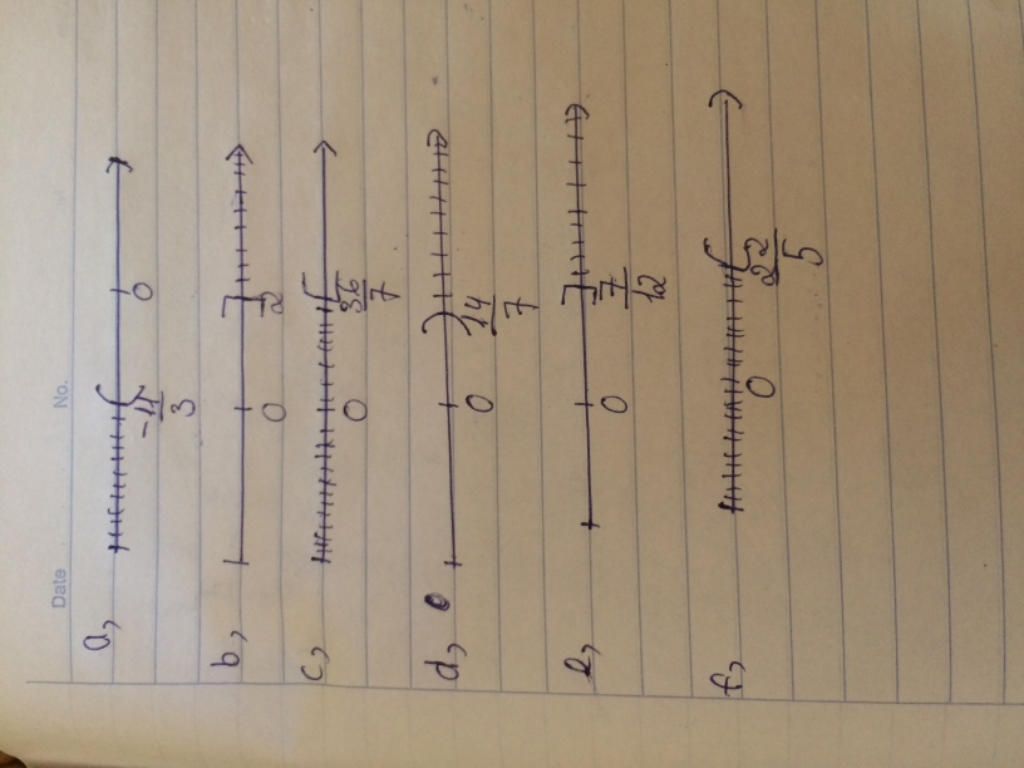 Date No.
a, -11/3 0
b, 0 2
c, 0 36/7
d, 0 14/7
e, 0 7/12
f, 0 22/5